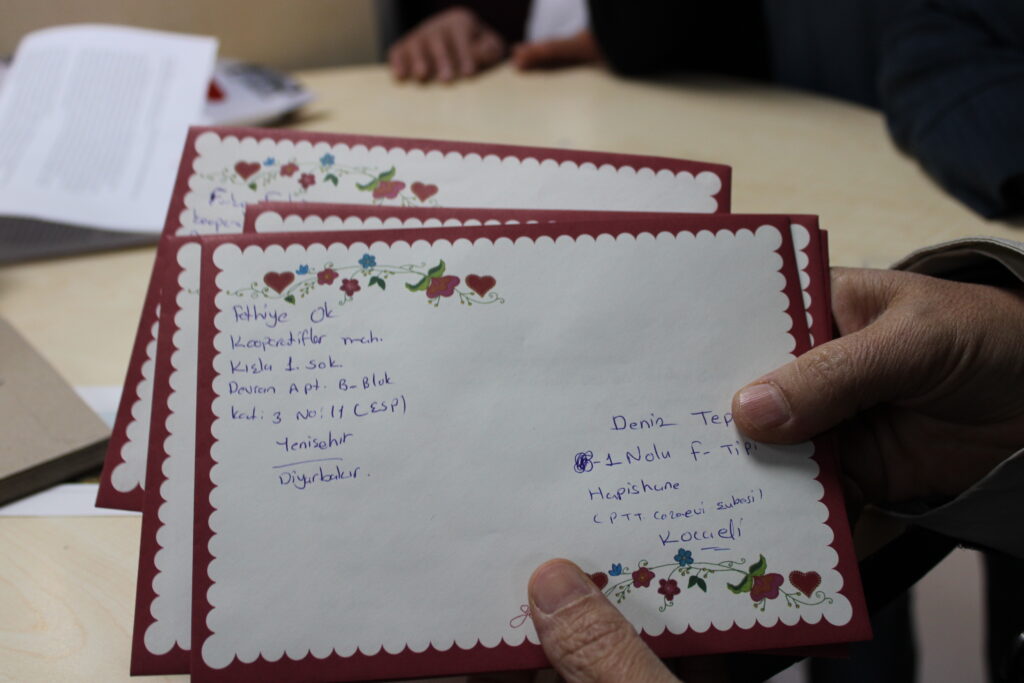 Fethiye Ok
Kooperatifler mah.
Kışla 1. sok.
Devran Apt. B-Blok
kat: 3 No: 11 (ESP)
Yenişehir
Diyarbakır.
Deniz Tep
-1 Nolu F-Tipi
Hapishane
(PTT Cezaevi Şubesi)
Kocaeli